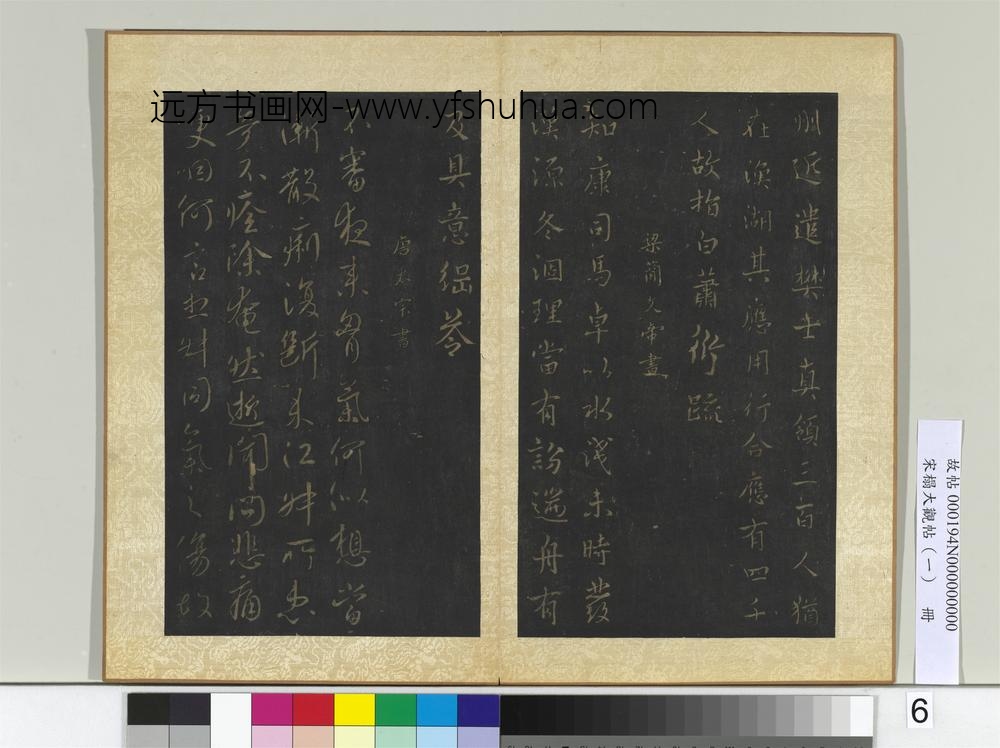 远方书画网-www.yfshuhua.com
州近遣樊士真領三百人猶
在漁湖其應用行合應有四千
人故指白蕭衍疏
梁簡文帝書
知康司馬卓以水淺未時發
漢源冬涸理當有訪遄舟有
及具意綱荅
唐太宗書
不審夜來胷氣何似想當
漸散痢復斷未江叔所患
竟不痊除奄然逝聞問悲痛
更因何言想叔同氣之傷故
故帖 000194N000000000
宋榻大觀帖（一）　冊
6